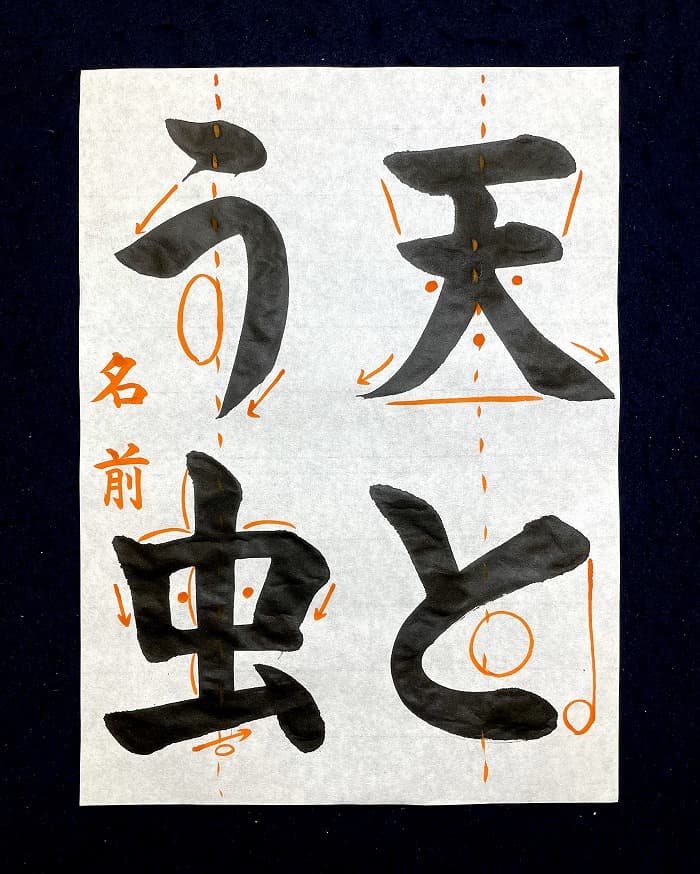 天と
う虫
名前